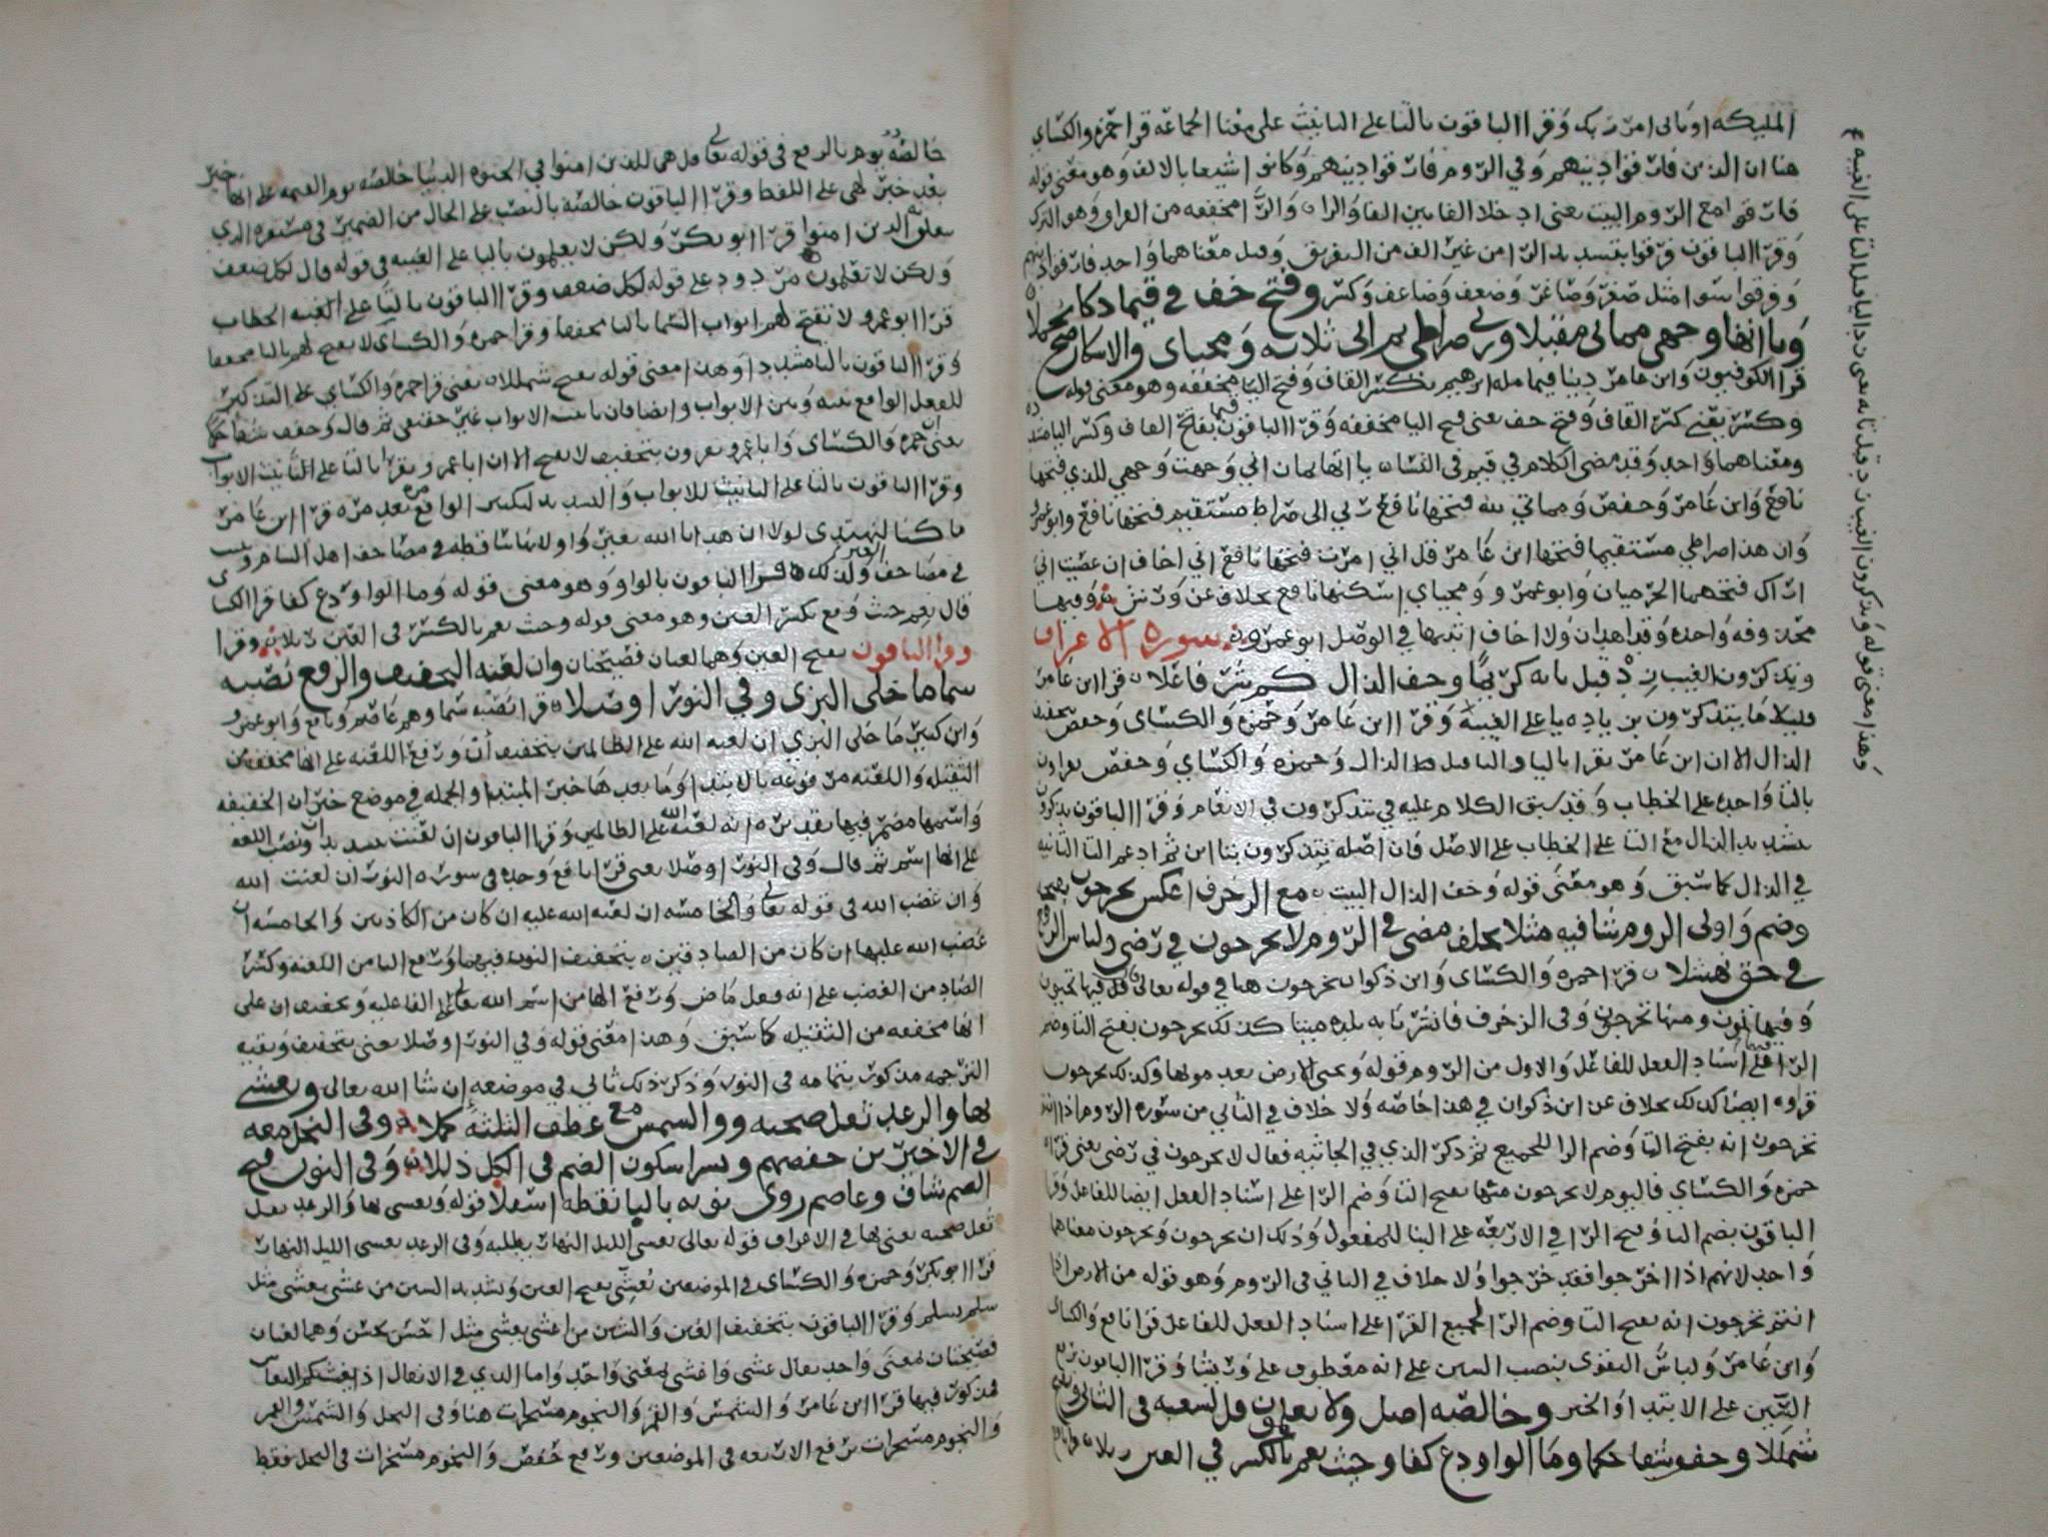 المليكه او ياتى امر ربك وقرا الباقون بالتا على التانيث على معنا الجماعه قرا حمزه والكساي
هنا ان الذين فارقوا دينهم وفي الروم فارقوا دينهم وكانوا شيعا بالالف وهو معنى قوله
فارقوا مع الروم البيت يعنى ادخلا الفا بين الفا والرا والرا مخففه من الفراق وهو الترك
وقرا الباقون فرقوا بتشديد الرا من غير الف من التفريق وقيل معناهما واحد فارقوا دينهم
وفرقوا سوا مثل صغر وصاغر وضعف وضاعف وكسر وفتح خف في قيما ذكا
وياانها وجهي مماتي مقبلا وربي صراطي ثم اني ثلاثه ومحياي والاسكان صح تحملا
قرا الكوفيون وابن عامر دينا قيما مله ابرهيم بكسر القاف وفتح اليا مخففه وهو معنى قوله
وكسر يعني كسر القاف وفتح خف يعنى فتح اليا مخففه وقرا الباقون قيما بفتح القاف وكسر اليا
ومعناهما واحد وقد مضى الكلام في قيم في النسا ياانها يمان اني وجهت وجهي للذي فتحها
نافع وابن عامر وحفص ومماتي لله فتحها نافع ربي الى صراط مستقيم فتحها نافع وابو عمرو
وان هذا صراطي مستقيما فتحها ابن عامر قل اني امرت فتحها نافع اني اخاف ان عصيت اني
اراك فتحهما الحرميان وابو عمرو ومحياي اسكنها نافع بخلاف عن ورش وفيها
محذوفه واحده وقد هدان ولا اخاف اثبتها في الوصل ابو عمرو سورة الاعراف
ويذكرون الغيب زد قبل تايه كريما وخف الذال كم شرفا علا قرا ابن عامر
قليلا ما يتذكرون بزياده يا على الغيبه وقرا ابن عامر وحمزه والكساي وحفص بتخفيف
الذال الا ان ابن عامر يقرا باليا والتا قبل الذال وحمزه والكساي وحفص يقراون
بالتا واحده على الخطاب وقد سبق الكلام عليه في تتذكرون في الانعام وقرا الباقون تذكرون
بتشديد الذال مع التا على الخطاب على الاصل فان اصله تتذكرون بتااين ثم ادغم التا الثانيه
في الذال كما سبق وهو معنى قوله وخف الذال البيت مع الزخرف اعكس تخرجون بفتحه
وضم واولى الروم شافيه مثلا بخلف مضى في الروم لا يخرجون في رضى ولباس الرفع
في حق نهشلا قرا حمزه والكساي وابن ذكوان تخرجون هنا في قوله تعالى قل فيها تحيون
وفيها تموتون ومنها تخرجون وفي الزخرف فانشرنا به بلده ميتا كذلك تخرجون بفتح التا وضم
الرا فيهما على اسناد الفعل للفاعل والاول من الروم قوله ويحيى الارض بعد موتها وكذلك تخرجون
قراوه ايضا كذلك بخلاف عن ابن ذكوان في هذا خاصه ولا خلاف في الثاني من سوره الروم اذا انتم
تخرجون انه بفتح التا وضم الرا للجميع ثم ذكر الذي في الجاثيه فقال لا يخرجون في رضى يعنى قراه
حمزه والكساي فاليوم لا يخرجون منها بفتح اليا وضم الرا على اسناد الفعل ايضا للفاعل وقرا
الباقون بضم التا وفتح الرا في الاربعه على البنا للمفعول وذلك ان يخرجون ويخرجون معناهما
واحد لانهم اذا اخرجوا فقد خرجوا ولا خلاف في الثاني في الروم وهو قوله من الارض اذا
انتم تخرجون انه بفتح التا وضم الرا لجميع القرا على اسناد الفعل للفاعل قرا نافع والكساي
وابن عامر ولباس التقوى بنصب السين على انه معطوف على وريشا وقرا الباقون برفع
السين على الابتدا والخبر وخالصه اصل ولا يعلمون قل لشعبه في الثاني ويفتح
شمللا وخفف شفا حكما وما الواو دع كفا وحيث نعم بالكسر في العين رتلا قرا نافع
وهذا معنى قوله ويذكرون الغيب زد قبل تايه يعنى زد اليا قبل التا على الغيبه
خالصه يوم بالرفع في قوله تعالى قل هي للذين امنوا في الحيوه الدنيا خالصه يوم القيمه على انها خبر
بعد خبر لهي على اللفظ وقرا الباقون خالصة بالنصب على الحال من الضمير في مستقره الذي
يعلق به الذين امنوا قرا ابو بكر ولكن لا يعلمون باليا على الغيبه في قوله قال لكل ضعف
ولكن لا تعلمون مردود على قوله لكل ضعف وقرا الباقون بالتا على الخطاب
قرا ابو عمرو لا تفتح لهم ابواب السما بالتا مخففا وقرا حمزه والكساي لا يفتح لهم باليا مخففا
وقرا الباقون بالتا مشددا وهذا معنى قوله يفتح شمللا يعنى قرا حمزه والكساي على التذكير
للفعل الواقع بينه وبين الابواب وايضا فان تانيث الابواب غير حقيقي ثم قال وخفف شفا حكما
يعنى حمزه والكساي وابا عمرو يقرون بتخفيف لا يفتح الا ان ابا عمرو يقرا بالتا على التانيث الابواب
وقرا الباقون بالتا على التانيث للابواب والتشديد لتكثير الواقع مره بعد مره قرا ابن عامر
ما كنا لنهتدى لولا ان هدانا الله بغير واو لانها ساقطه في مصاحف اهل الشام وثبتت
في مصاحف غيرهم ولذلك قرا الباقون بالواو وهو معنى قوله وما الواو دع كفا قرا الكساي
قال نعم حيث وقع بكسر العين وهو معنى قوله وحيث نعم بالكسر في العين رتلا وقرا
وقرا الباقون بفتح العين وهما لغتان فصيحتان وان لعنه التخفيف والرفع نصه
سما ما خلى البزي وفي النور اوصلا قرا نصه سما وهم عاصم ونافع وابو عمرو
وابن كثير ما خلى البزي ان لعنه الله على الظالمين بتخفيف ان ورفع اللعنه على انها مخففه من
الثقيله واللعنه مرفوعه بالابتدا وما بعدها خبر المبتدا والجمله في موضع خبر ان الخفيفه
واسمها مضمر فيها تقديره انه لعنه الله على الظالمين وقرا الباقون ان لعنت بتشديد ان ونصب اللعنه
على انها اسم ثم قال وفي النور اوصلا يعنى قرا نافع وحده في سوره النور ان لعنت الله
وان غضب الله في قوله تعالى والخامسه ان لعنه الله عليه ان كان من الكاذبين والخامسه ان
غضب الله عليها ان كان من الصادقين بتخفيف النون فيهما ورفع التا من اللعنه وكسر
الضاد من الغضب على انه فعل ماض ورفع الها من اسم الله تعالى على الفاعليه وتخفيف ان على
انها مخففه من الثقيله كما سبق وهذا معنى قوله وفي النور اوصلا يعنى بتخفيف وبقيه
الترجمه مذكور بتمامه في النور وذكر ذلك ثاني في موضعه ان شا الله تعالى ويغشى
بها والرعد ثقل صحبه ووالشمس مع عطف الثلثه كملا وفي النحل معه
في الاخيرين حفصهم ونشرا سكون الضم في الكل ذللا وفي النون فتح
الضم شاف وعاصم روى نونه باليا نقطه اسفلا قوله ويغشى بها والرعد ثقل
ثقل صحبه يعنى بها في الاعراف قوله تعالى يغشى الليل النهار يطلبه وفي الرعد يغشى الليل النهار
قرا ابو بكر وحمزه والكساي في الموضعين يغشى بفتح الغين وتشديد الشين من غشى يغشى مثل
سلم يسلم وقرا الباقون بتخفيف الغين والشين من اغشى يغشى مثل احسن يحسن وهما لغتان
فصيحتان لمعنى واحد يقال غشى واغشى لمعنى واحد واما الذي في الانفال اذ يغشيكم النعاس
فمذكور فيها قرا ابن عامر والشمس والقمر والنجوم مسخرات هنا وفي النحل والشمس والقمر
والنجوم مسخرات برفع الاربعه في الموضعين ورفع حفص والنجوم مسخرات في النحل فقط